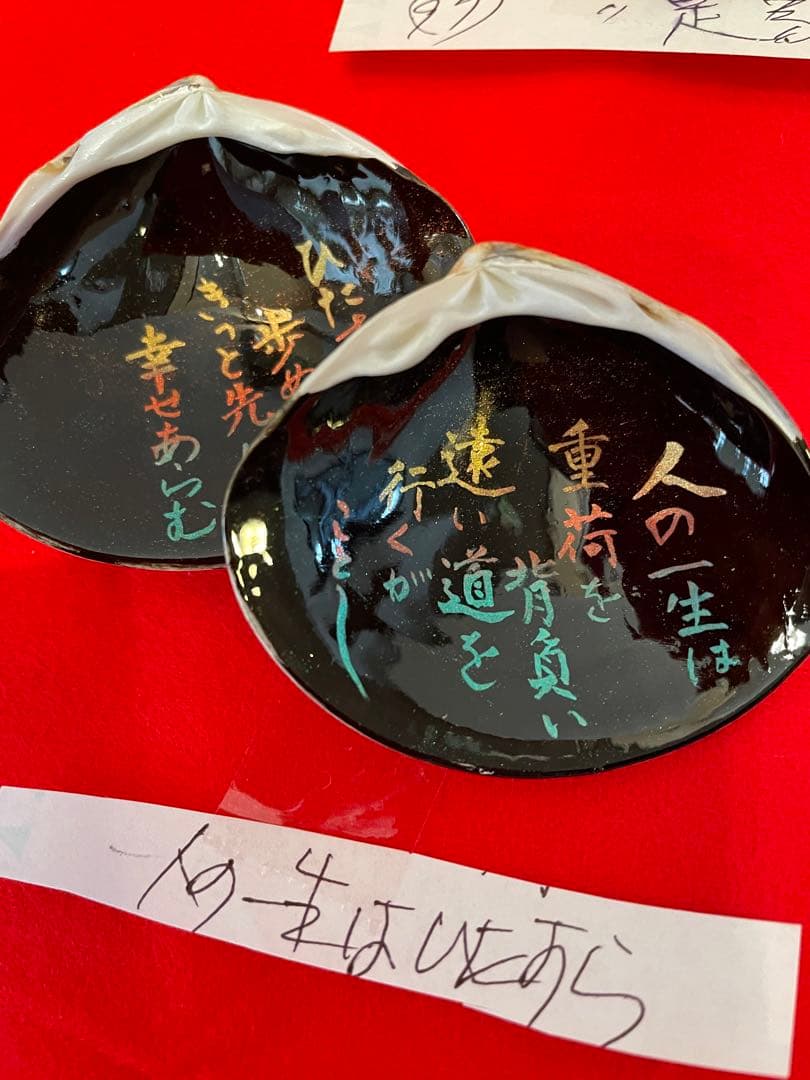 人の一生は
重荷を
背負い
遠い道を
行くが
ごとし
ひたす
歩め
きっと先
幸せあらむ
人の一生はひたすら